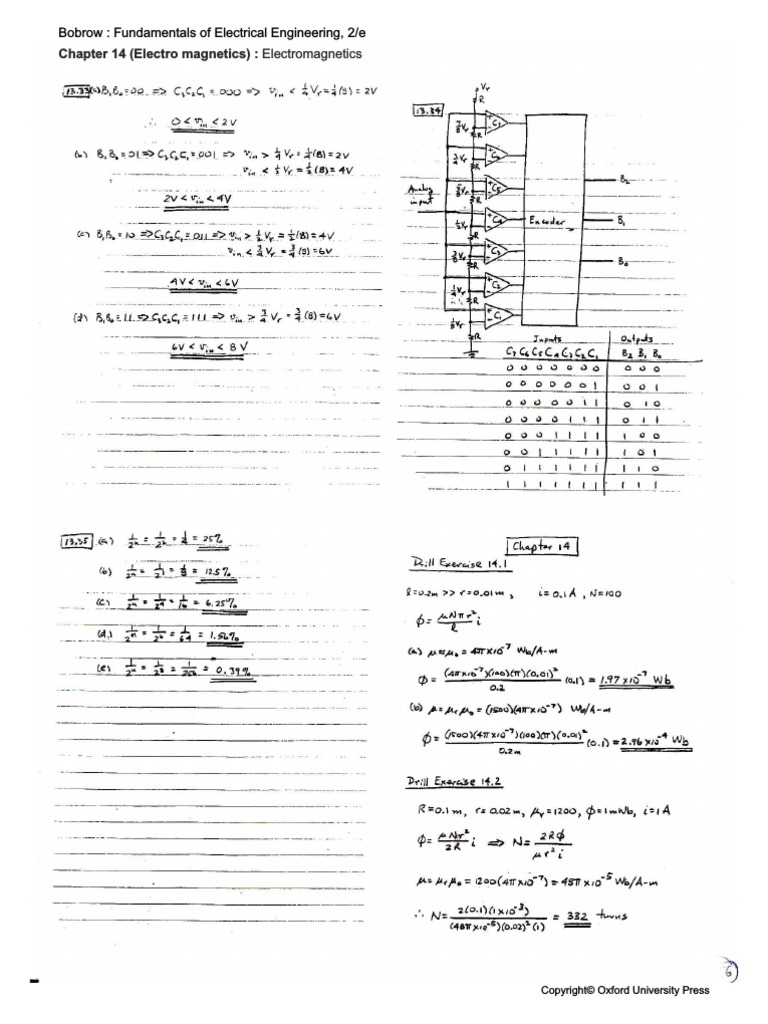 Bobrow : Fundamentals of Electrical Engineering, 2/e
Chapter 14 (Electro magnetics) : Electromagnetics
13.33 (a) B₁B₀ = 00 => C₃C₂C₁ = 000 => vᵢₙ < 1/4 Vᵣ = 1/4(8) = 2V
∴ 0 < vᵢₙ < 2V
(b) B₁B₀ = 01 => C₃C₂C₁ = 001 => vᵢₙ > 1/4 Vᵣ = 1/4(8) = 2V
vᵢₙ < 1/2 Vᵣ = 1/2(8) = 4V
2V < vᵢₙ < 4V
(c) B₁B₀ = 10 => C₃C₂C₁ = 011 => vᵢₙ > 1/2 Vᵣ = 1/2(8) = 4V
vᵢₙ < 3/4 Vᵣ = 3/4(8) = 6V
4V < vᵢₙ < 6V
(d) B₁B₀ = 11 => C₃C₂C₁ = 111 => vᵢₙ > 3/4 Vᵣ = 3/4(8) = 6V
6V < vᵢₙ < 8V
13.34
Vᵣ
R
7/8 Vᵣ + - C₇
R
3/4 Vᵣ + - C₆
5/8 Vᵣ + - C₅ B₂
R
Analog
input
1/2 Vᵣ + - C₄ Encoder B₁
R
3/8 Vᵣ + - C₃ B₀
R
1/4 Vᵣ + - C₂
R
1/8 Vᵣ + - C₁
R
Inputs Outputs
C₇ C₆ C₅ C₄ C₃ C₂ C₁ B₂ B₁ B₀
0 0 0 0 0 0 0 0 0 0
0 0 0 0 0 0 1 0 0 1
0 0 0 0 0 1 1 0 1 0
0 0 0 0 1 1 1 0 1 1
0 0 0 1 1 1 1 1 0 0
0 0 1 1 1 1 1 1 0 1
0 1 1 1 1 1 1 1 1 0
1 1 1 1 1 1 1 1 1 1
13.35 (a) 1/2ⁿ = 1/2² = 1/4 = 25%
(b) 1/2ⁿ = 1/2³ = 1/8 = 12.5%
(c) 1/2ⁿ = 1/2⁴ = 1/16 = 6.25%
(d) 1/2ⁿ = 1/2⁶ = 1/64 = 1.56%
(e) 1/2ⁿ = 1/2⁸ = 1/256 = 0.39%
Chapter 14
Drill Exercise 14.1
l = 0.2m >> r = 0.01m, i = 0.1A, N = 100
ϕ = μNπr²/l i
(a) μ = μ₀ = 4π×10⁻⁷ Wb/A-m
ϕ = (4π×10⁻⁷)(100)(π)(0.01)²/0.2 (0.1) = 1.97×10⁻⁷ Wb
(b) μ = μᵣμ₀ = (1500)(4π×10⁻⁷) Wb/A-m
ϕ = (1500)(4π×10⁻⁷)(100)(π)(0.01)²/0.2m (0.1) = 2.96×10⁻⁴ Wb
Drill Exercise 14.2
R = 0.1m, r = 0.02m, μᵣ = 1200, ϕ = 1mWb, i = 1A
ϕ = μNr²/2R i => N = 2Rϕ/μr²i
μ = μᵣμ₀ = 1200(4π×10⁻⁷) = 48π×10⁻⁵ Wb/A-m
∴ N = 2(0.1)(1×10⁻³)/(48π×10⁻⁵)(0.02)²(1) = 332 turns
Copyright© Oxford University Press